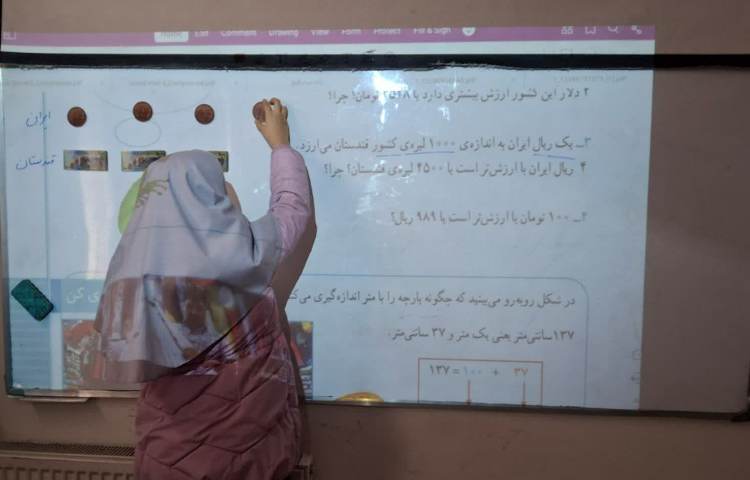 Edit Comment Drawing View Form Protect Fill & Sign
۲ دلار این کشور ارزش بیشتری دارد یا تومان؟ چرا؟
ایران
۳ــ یک ریال ایران به اندازه‌ی ۱۰۰۰ لیره‌ی کشور قندستان می‌ارزد.
قندستان
۴ ریال ایران با ارزش‌تر است یا ۴۵۰۰ لیره‌ی قندستان؟ چرا؟
۴ــ ۱۰۰ تومان با ارزش‌تر است یا ۹۸۹ ریال؟
در شکل روبه‌رو می‌بینید که چگونه پارچه را با متر اندازه‌گیری می‌کند
ی کن
۱۳۷ سانتی‌متر یعنی یک متر و ۳۷ سانتی‌متر.
۱۳۷ = ۱۰۰ + ۳۷